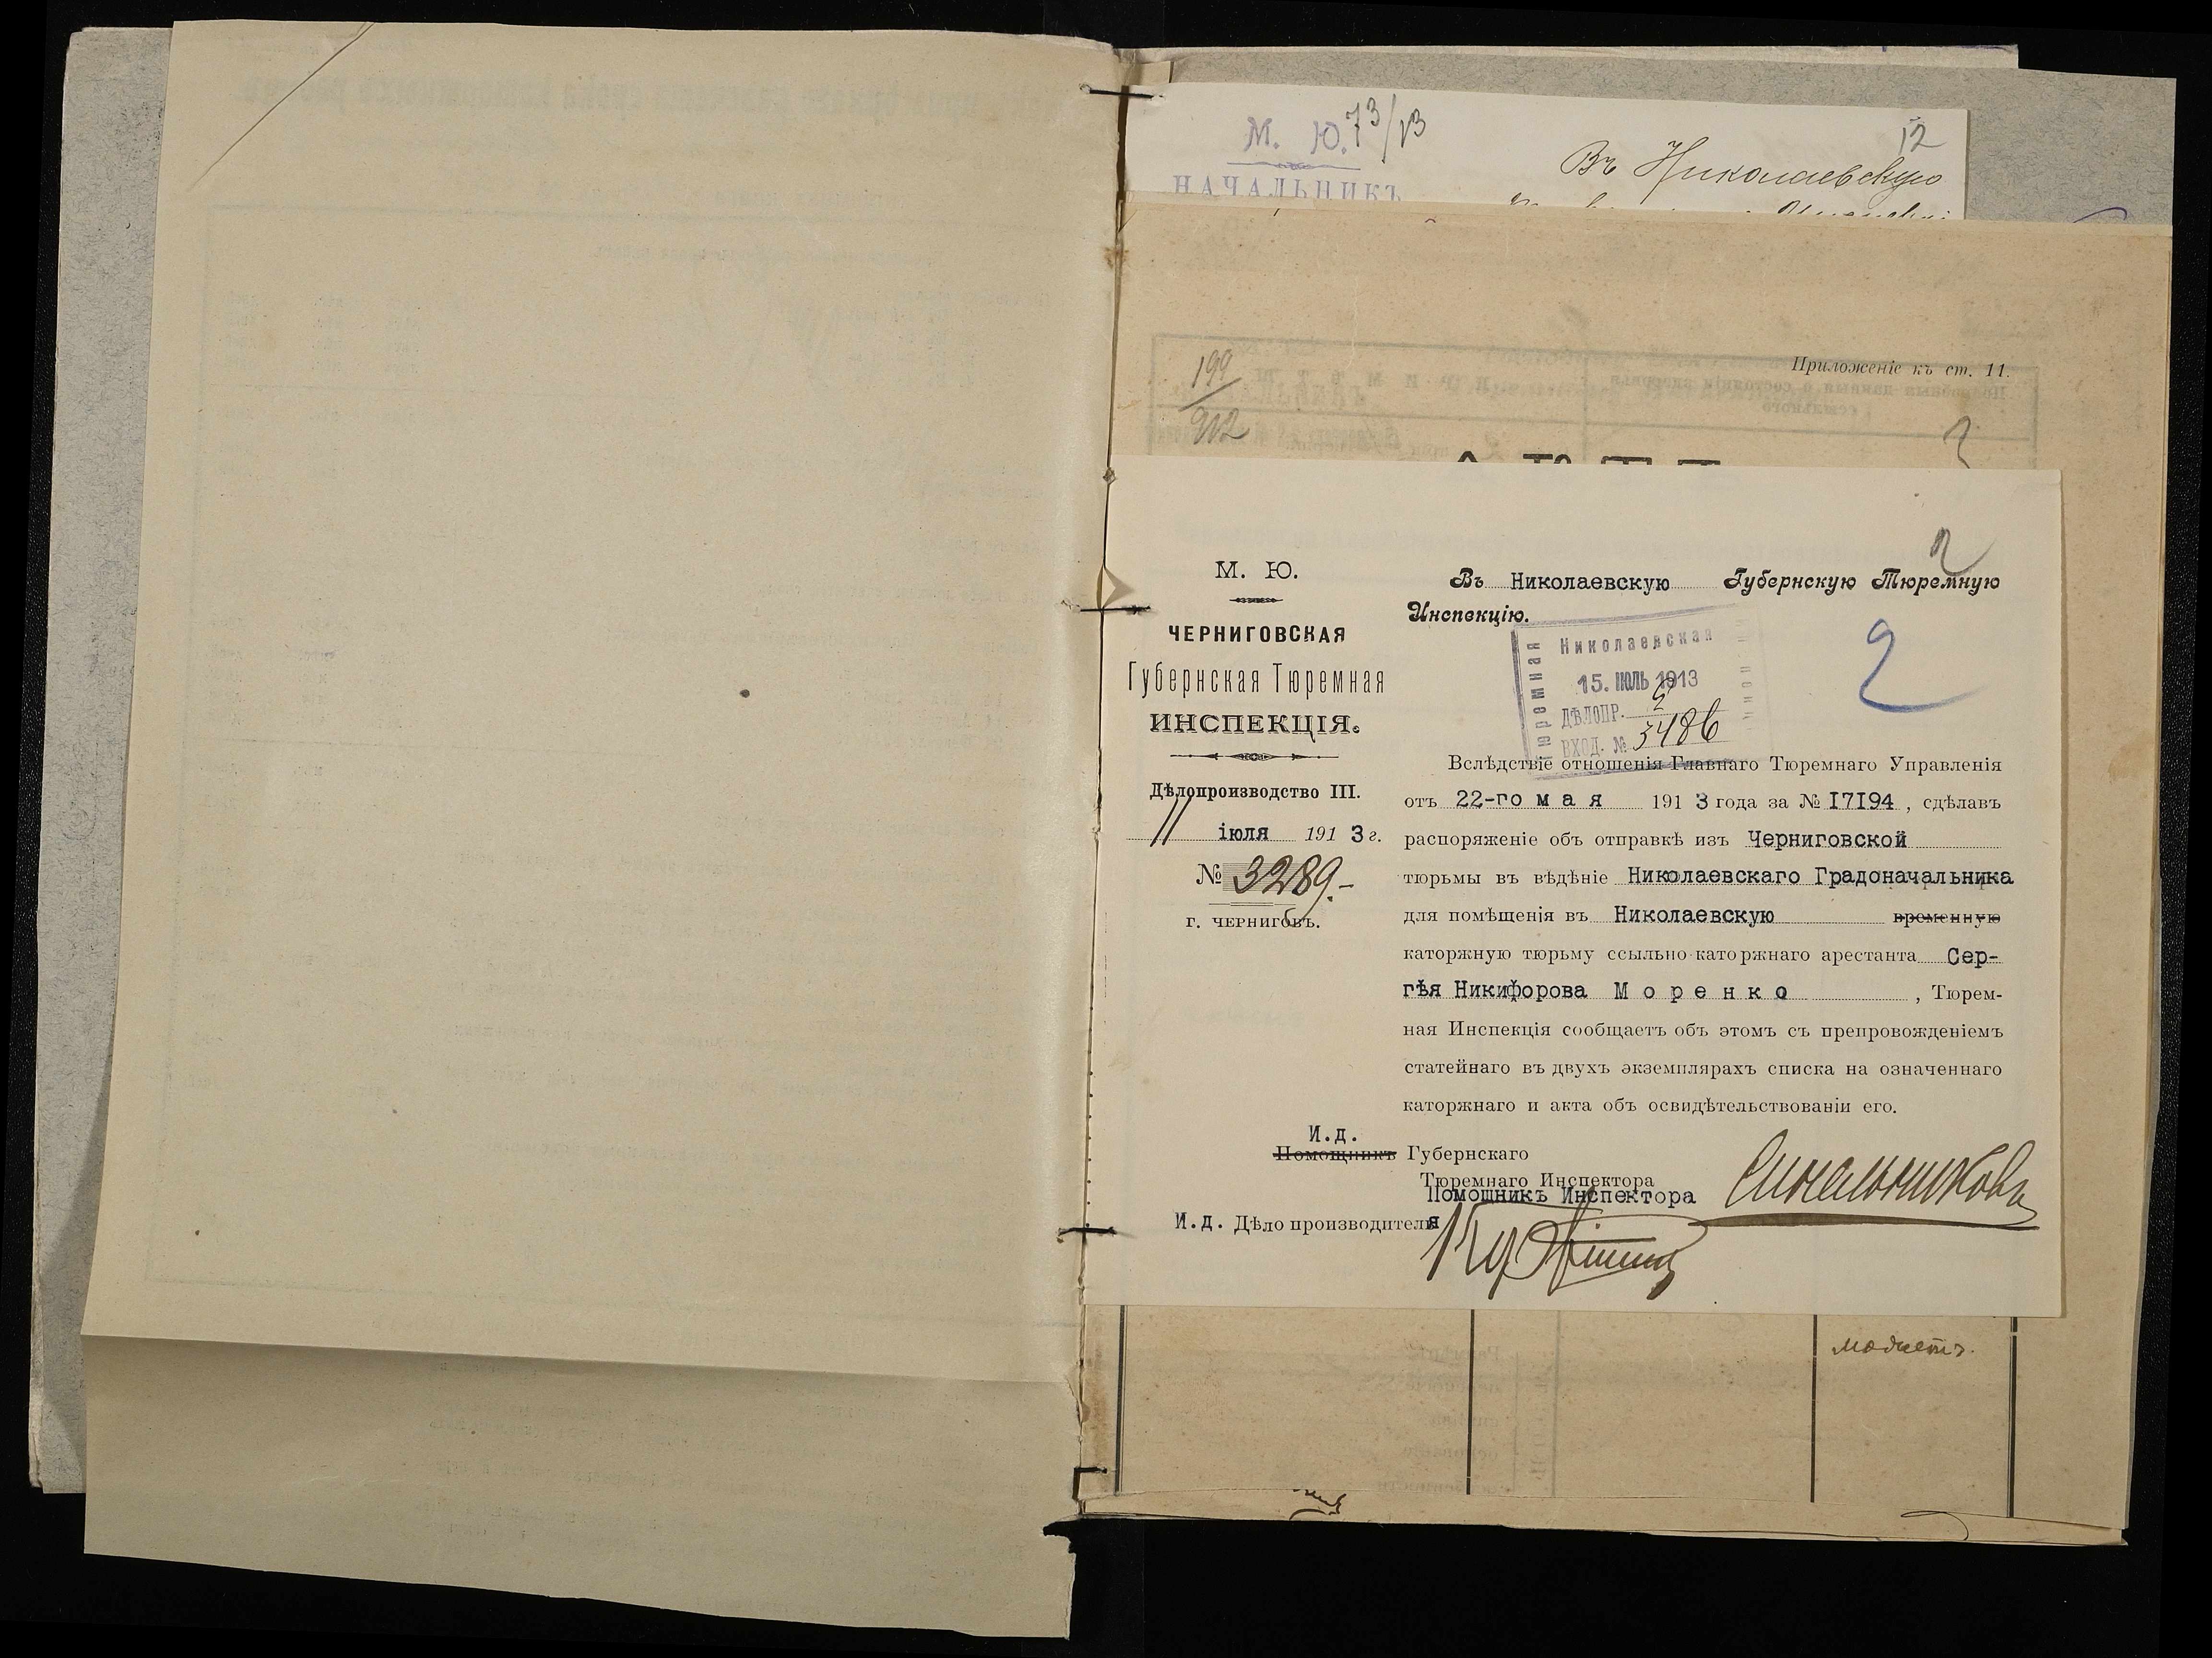 М. Ю. 73/13
12
НАЧАЛЬНИКЪ
Въ Николаевскую
Приложеніе къ ст. 11.
199
912
2
М. Ю.
ЧЕРНИГОВСКАЯ
Губернская Тюремная
ИНСПЕКЦІЯ.
Дѣлопроизводство III.
11 іюля 1913 г.
№ 3289.-
г. ЧЕРНИГОВЪ.
Въ Николаевскую Губернскую Тюремную
Инспекцію.
2
Николаевская
Тюремная
15. ІЮЛЬ 1913
ДѢЛОПР. 2
ВХОД. № 3486
Вслѣдствіе отношенія Главнаго Тюремнаго Управленія
отъ 22-го мая 1913 года за № 17194, сдѣлавъ
распоряженіе объ отправкѣ изъ Черниговской
тюрьмы въ вѣдѣніе Николаевскаго Градоначальника
для помѣщенія въ Николаевскую временную
каторжную тюрьму ссыльно-каторжнаго арестанта Сер-
гѣя Никифорова Моренко, Тюрем-
ная Инспекція сообщаетъ объ этомъ съ препровожденіемъ
статейнаго въ двухъ экземплярахъ списка на означеннаго
каторжнаго и акта объ освидѣтельствованіи его.
И.д.
Помощникъ Губернскаго
Тюремнаго Инспектора
Помощникъ Инспектора Синельниковъ
И.д. Дѣлопроизводителя
можетъ.